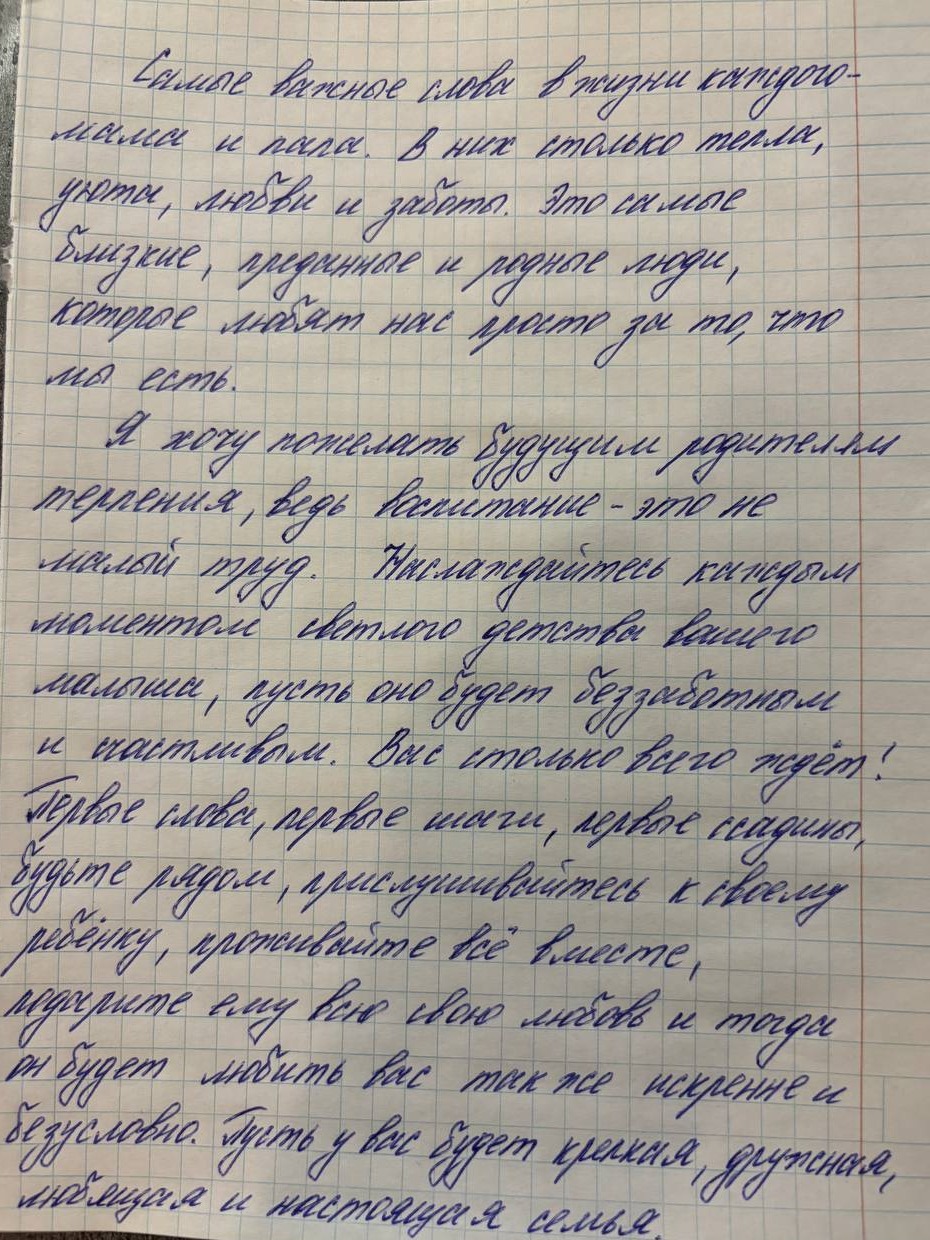 Самые важные слова в жизни каждого-
мама и папа. В них столько тепла,
уюта, любви и заботы. Это самые
близкие, преданные и родные люди,
которые любят нас просто за то, что
мы есть.
Я хочу пожелать будущим родителям
терпения, ведь воспитание - это не
малый труд. Наслаждайтесь каждым
моментом светлого детства вашего
малыша, пусть оно будет беззаботным
и счастливым. Вас столько всего ждёт!
Первые слова, первые шаги, первые ссадины,
будьте рядом, прислушивайтесь к своему
ребёнку, проживайте всё вместе,
подарите ему всю свою любовь и тогда
он будет любить вас так же искренне и
безусловно. Пусть у вас будет крепкая, дружная,
любящая и настоящая семья.